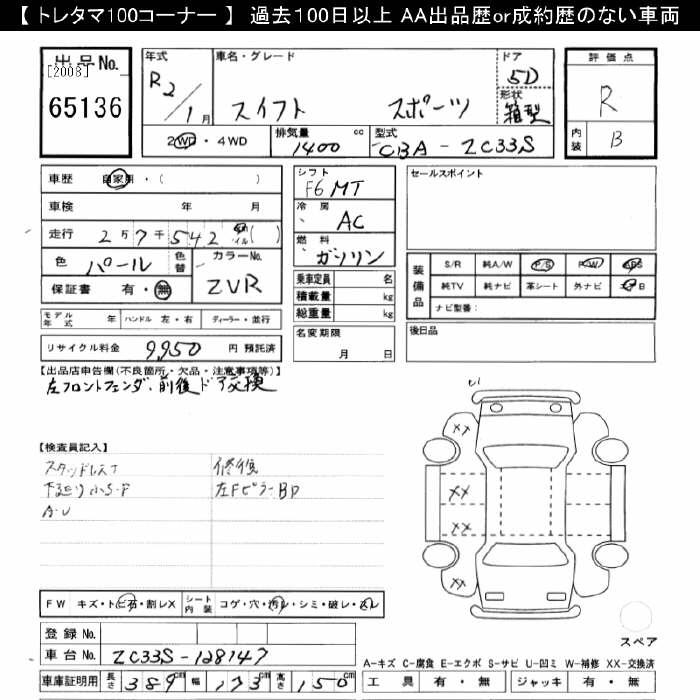 【 トレタマ100コーナー 】 過去100日以上 AA出品歴or成約歴のない車両
出品No.
[2008]
65136
年式 R2/1月
車名・グレード スイフト スポーツ
ドア 5D
形状 箱型
2WD・4WD
排気量 1400 cc
型式 CBA-ZC33S
評価点 R
内装 B
車歴 自家用・( )
車検 年 月
走行 2万7千542 km マイル ( )
色 パール 色替
カラーNo. ZVR
保証書 有・無
モデル年式 年 ハンドル 左・右 ディーラー・並行
リサイクル料金 9,950 円 預託済
シフト F6 MT
冷房 AC
燃料 ガソリン
乗車定員 名
積載量 kg
総重量 kg
名変期限
月 日
セールスポイント
装備品
S/R 純A/W P/S P/W ABS
純TV 純ナビ 革シート 外ナビ エアB
ナビ型番:
後日品
【出品店申告欄(不良箇所・欠品・注意事項等)】
左フロントフェンダ、前後ドア交換
【検査員記入】
スタッドレス 修復
下廻り小S・P 左FピラーBP
A・U
U1
XX
XX
XX
XX
FW キズ・トビ石・割レX シート内装 コゲ・穴・汚レ・シミ・破レ・スレ
登録No.
車台No. ZC33S-128147
車庫証明用 長さ 389cm 幅 173cm 高さ 150cm
スペア
A-キズ C-腐食 E-エクボ S-サビ U-凹ミ W-補修 XX-交換済
工具 有・無 ジャッキ 有・無